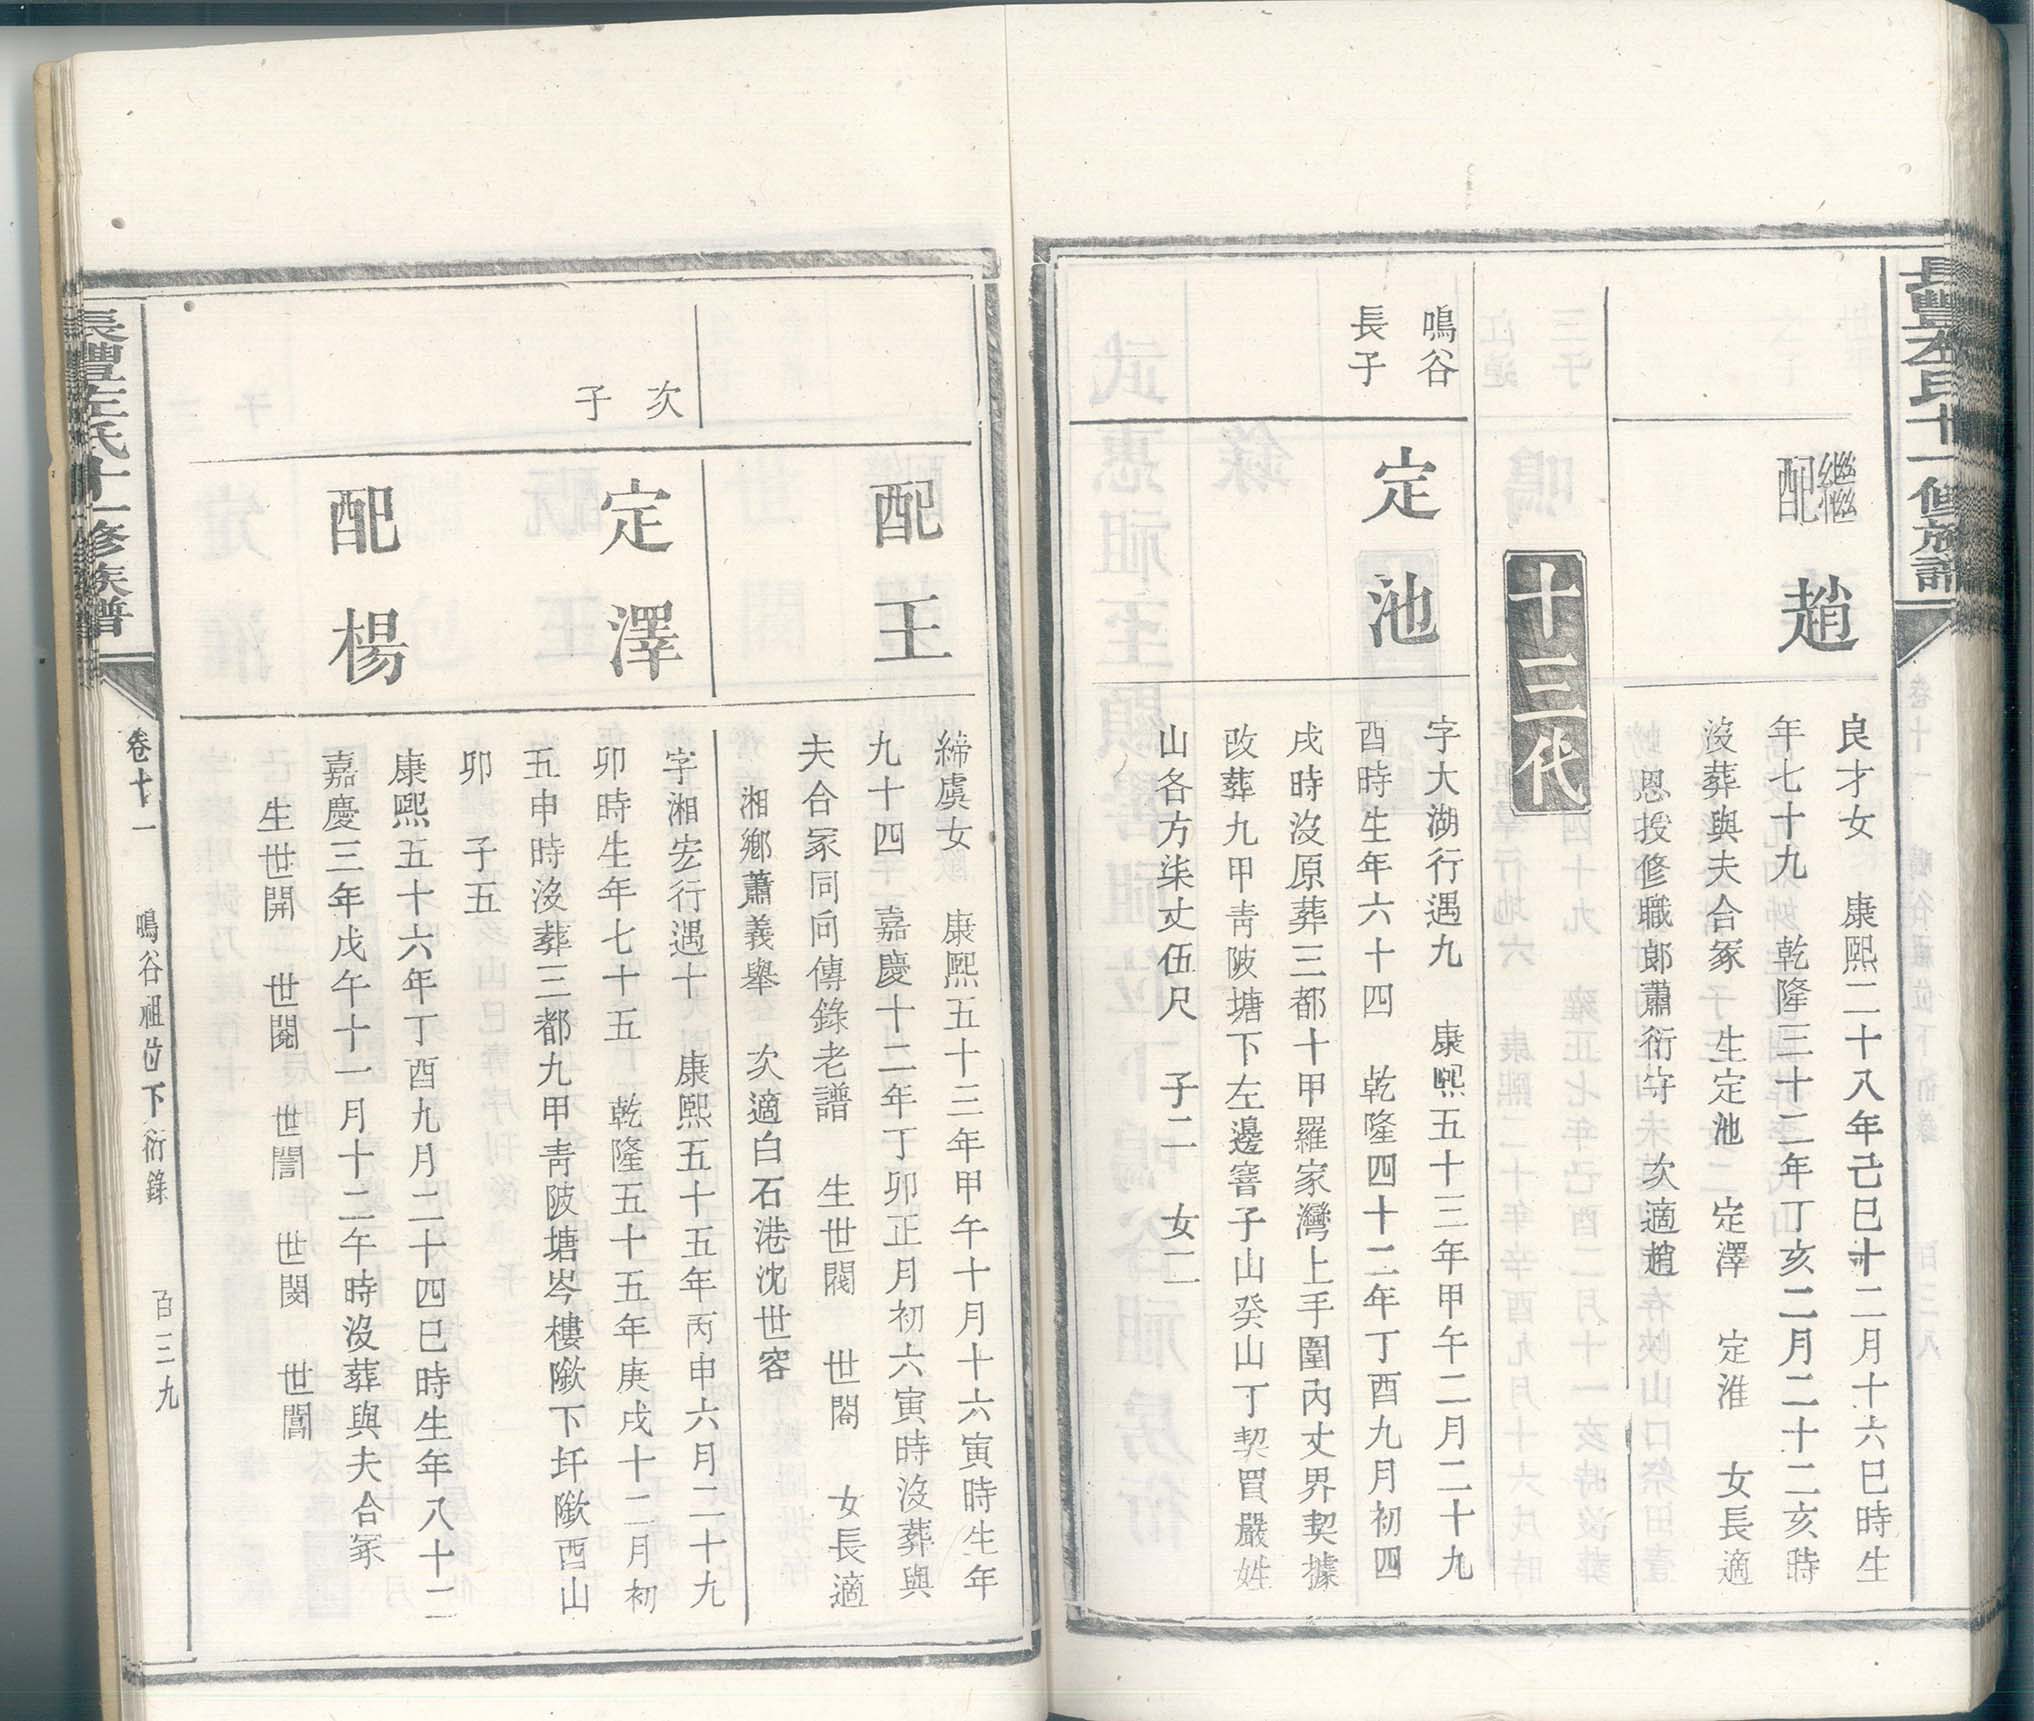 長豐左氏十一修族譜
繼配
趙
良才女　康熙二十八年己巳十二月十六巳時生
年七十九　乾隆三十二年丁亥二月二十二亥時
沒葬與夫合冢　生定池　定澤　定淮　女長適
恩授修職郎蕭衍守　次適趙
十三代
鳴谷
長子
定池
字大湖行遇九　康熙五十三年甲午二月二十九
酉時生年六十四　乾隆四十二年丁酉九月初四
戌時沒原葬三都十甲羅家灣上手圍內丈界契據
改葬九甲靑陂塘下左邊窨子山癸山丁契買嚴姓
山各方柒丈伍尺　子二　女二
配王
締虞女　康熙五十三年甲午十月十六寅時生年
九十四　嘉慶十二年丁卯正月初六寅時沒葬與
夫合冢同向傳錄老譜　生世閥　世閤　女長適
湘鄉蕭義舉　次適白石港沈世容
次
子
定澤
字湘宏行遇十　康熙五十五年丙申六月二十九
卯時生年七十五　乾隆五十五年庚戌十二月初
五申時沒葬三都九甲靑陂塘岑樓墈下圲墈酉山
卯　子五
配楊
康熙五十六年丁酉九月二十四巳時生年八十二
嘉慶三年戊午十一月十二午時沒葬與夫合冢
生世開　世閱　世誾　世閔　世閶
長豐左氏十一修族譜
卷十一
鳴谷祖位下衍錄
百三九